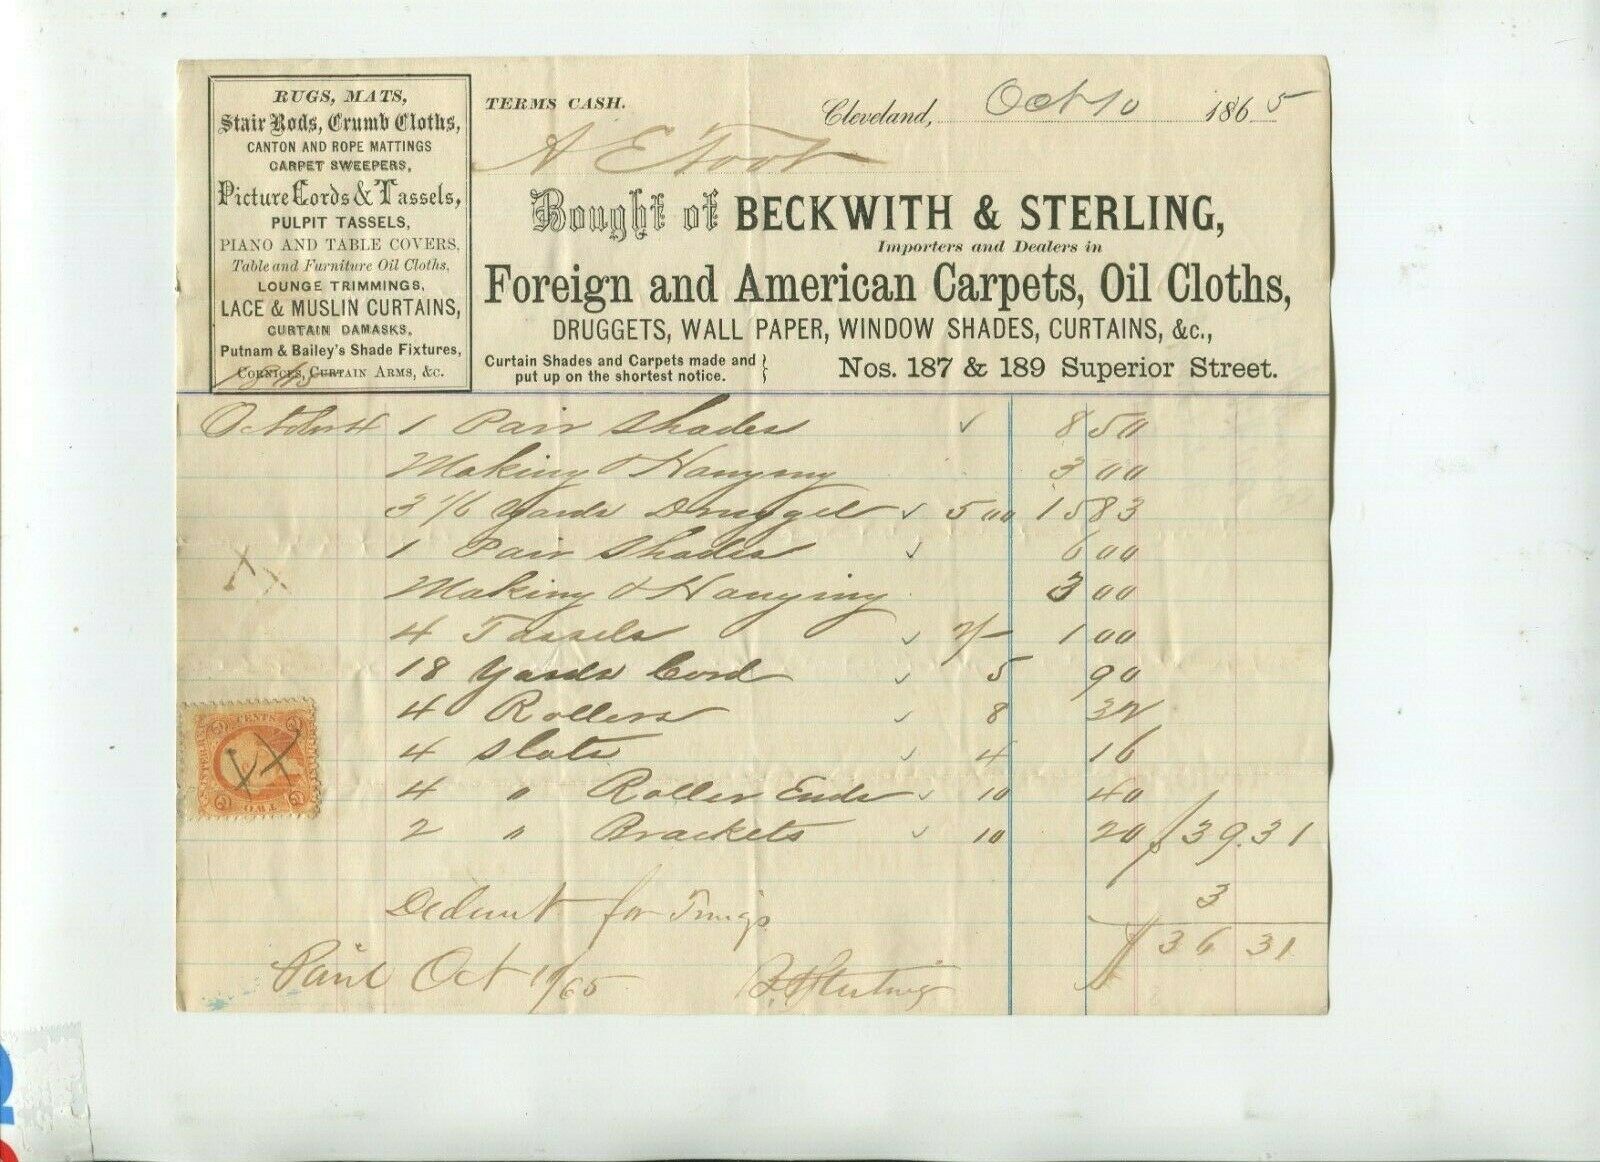 RUGS, MATS,
Stair Rods, Crumb Cloths,
CANTON AND ROPE MATTINGS
CARPET SWEEPERS,
Picture Cords & Tassels,
PULPIT TASSELS,
PIANO AND TABLE COVERS,
Table and Furniture Oil Cloths,
LOUNGE TRIMMINGS,
LACE & MUSLIN CURTAINS,
CURTAIN DAMASKS,
Putnam & Bailey's Shade Fixtures,
CORNICES, CURTAIN ARMS, &c.
TERMS CASH.
Cleveland, Oct 10 1865
A E Foot
Bought of BECKWITH & STERLING,
Importers and Dealers in
Foreign and American Carpets, Oil Cloths,
DRUGGETS, WALL PAPER, WINDOW SHADES, CURTAINS, &c.,
Curtain Shades and Carpets made and
put up on the shortest notice.
Nos. 187 & 189 Superior Street.
October 4 1 Pair Shades ✓ 8 50
Making & Hanging 3 00
3 1/6 Yards Drugget ✓ 5 00 15 83
1 Pair Shades ✓ 6 00
Making & Hanging 3 00
4 Tassels ✓ 2/- 1 00
18 Yards Cord ✓ 5 90
4 Rollers ✓ 8 32
4 Slats ✓ 4 16
4 " Roller Ends ✓ 10 40
2 " Brackets ✓ 10 20 $39.31
Deduct for 3
$36 31
Paid Oct 11/65 Sterling
XX
CENTS
TWO